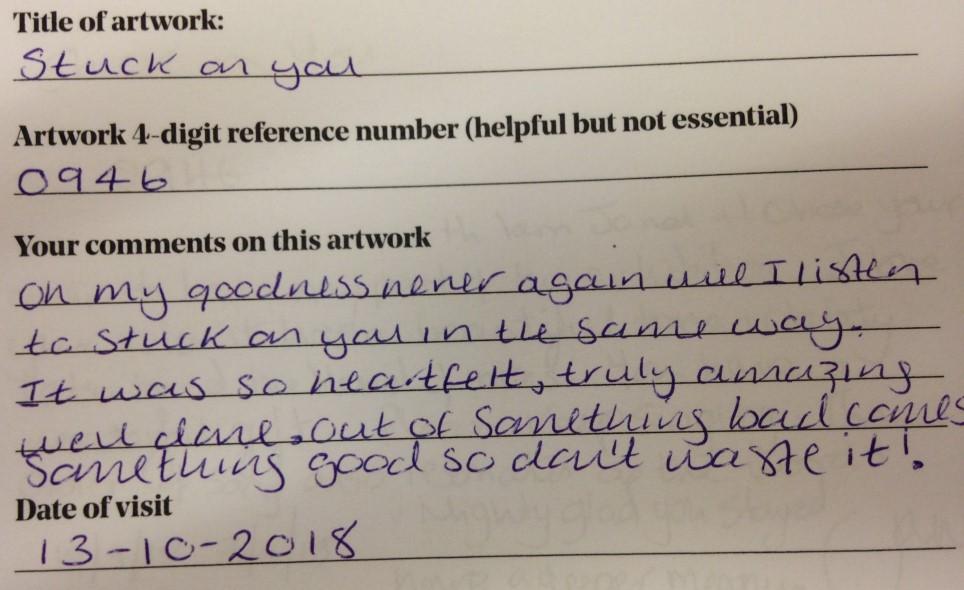 Title of artwork:
Stuck on you
Artwork 4-digit reference number (helpful but not essential)
0946
Your comments on this artwork
Oh my goodness never again will I listen
to stuck on you in the same way.
It was so heartfelt, truly amazing
well done. Out of something bad comes
something good so don't waste it!.
Date of visit
13-10-2018